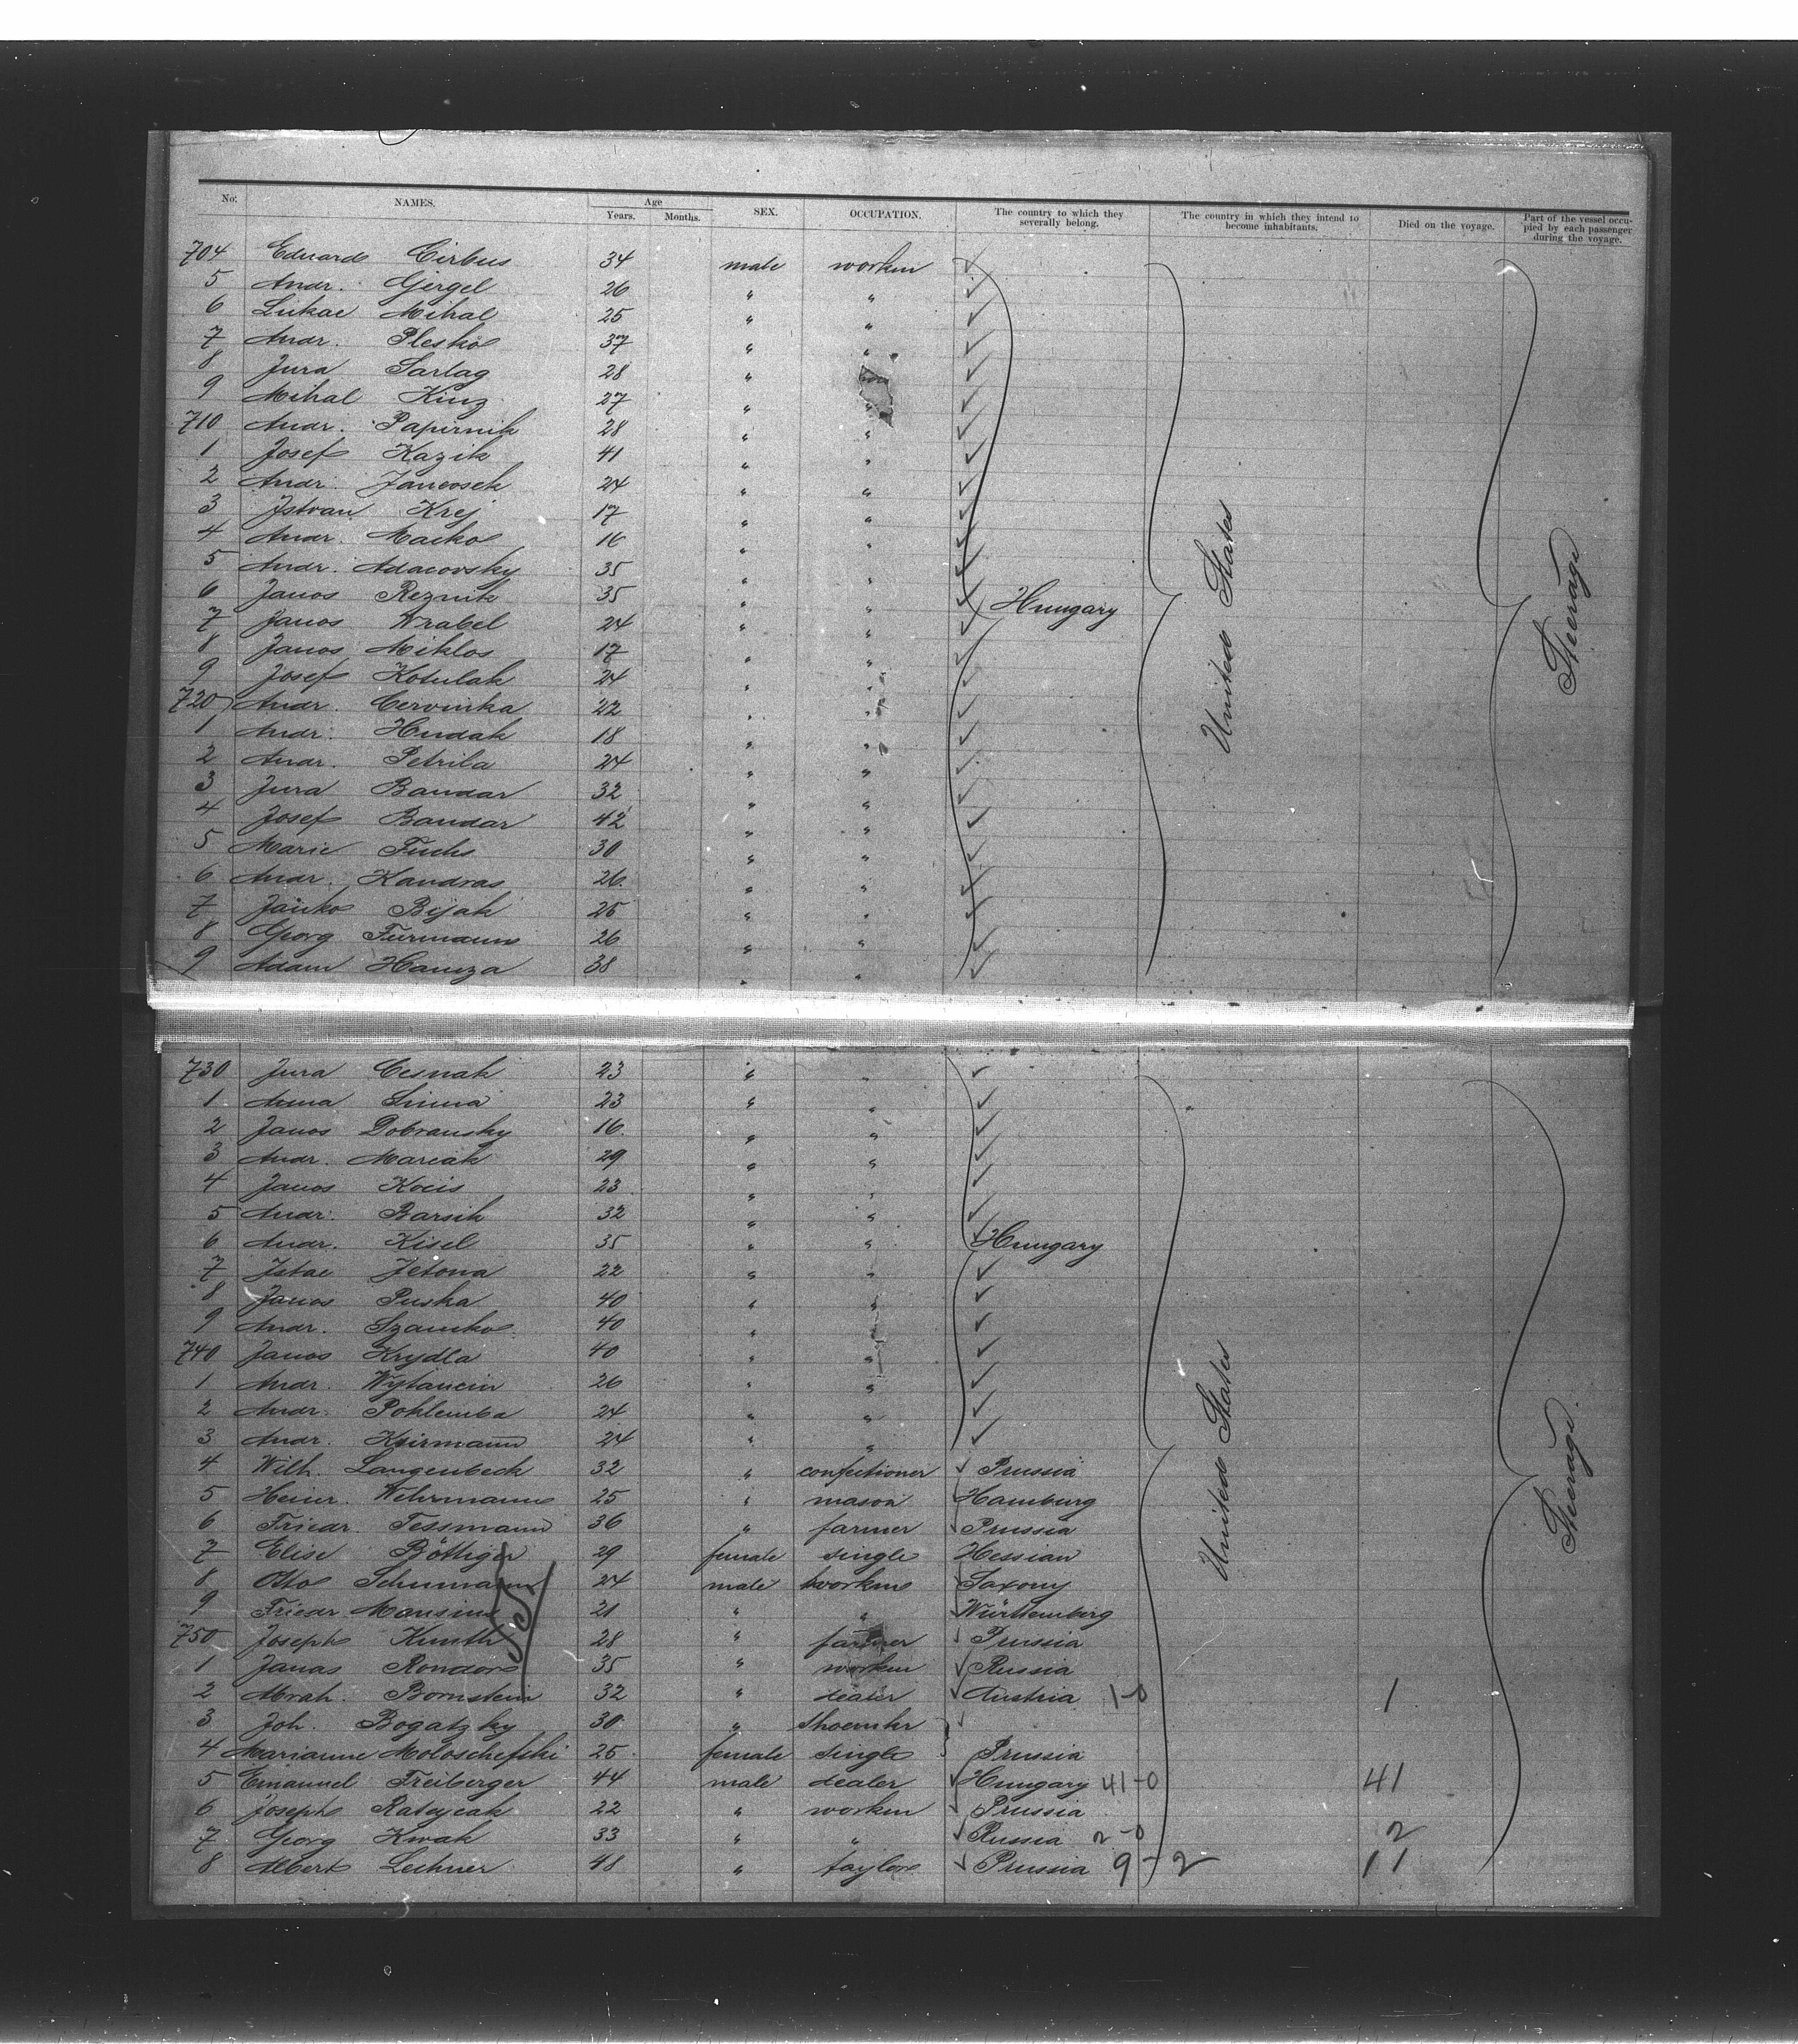 No. NAMES. Age Years. Months. SEX. OCCUPATION. The country to which they severally belong. The country in which they intend to become inhabitants. Died on the voyage. Part of the vessel occupied by each passenger during the voyage.
704 Eduard Cirbus 34 male worker
5 Andr. Gergel 26 " "
6 Lukac Mihal 25 " "
7 Andr. Plesko 37 " "
8 Jura Sarlag 28 "
9 Mihal Kinz 27 " "
710 Andr. Papirnik 28 " "
1 Josef Kazik 41 " "
2 Andr. Jancosek 24 " "
3 Istvan Krej 17 " "
4 Andr. Macko 16 " "
5 Andr. Adacovsky 35 " "
6 Janos Reznik 35 " " Hungary United States Steerage
7 Janos Wrabel 24 " "
8 Janos Miklos 17 " "
9 Josef Kotulak 24 " "
720 Andr. Cervinka 22 " "
1 Andr. Hudak 18 " "
2 Andr. Petrila 24 " "
3 Jura Bandar 32 " "
4 Josef Bandar 42 " "
5 Marie Fuchs 30 " "
6 Andr. Kandras 26 " "
7 Janko Bijak 25 " "
8 Georg Furmann 26 " "
9 Adam Hamza 38 " "
730 Jura Cesnak 23 " "
1 Anna Sima 23 " "
2 Janos Dobransky 16 " "
3 Andr. Marcak 29 " "
4 Janos Kocis 23 " "
5 Andr. Barsik 32 " "
6 Andr. Kisel 35 " " Hungary
7 Istac Jetona 22 " "
8 Janos Puska 40 " "
9 Andr. Szamko 40 " "
740 Janos Krydla 40 " "
1 Andr. Wytancin 26 " "
2 Andr. Pohlemba 24 " "
3 Andr. Kurmann 24 " "
4 Wilh. Langenbeck 32 " confectioner Prussia United States Steerage
5 Heinr. Wehrmann 25 " mason Hamburg
6 Friedr. Tessmann 36 " farmer Prussia
7 Elise Böttiger 29 female single Hessian
8 Otto Schumann 24 male worker Saxony
9 Friedr. Mansius 21 " " Württemberg
750 Joseph Kunth 28 " farmer Prussia
1 Janas Rondor 35 " worker Russia
2 Abrah. Bornstein 32 " dealer Austria 1-0 1
3 Joh. Bogatzky 30 " shoemkr
4 Marianne Moloschefski 25 female single Prussia
5 Emanuel Freiberger 44 male dealer Hungary 41-0 41
6 Joseph Ratajcak 22 " worker Prussia
7 Georg Kwak 33 " " Russia 2-0 2
8 Albert Lechner 48 " taylor Prussia 9-2 11